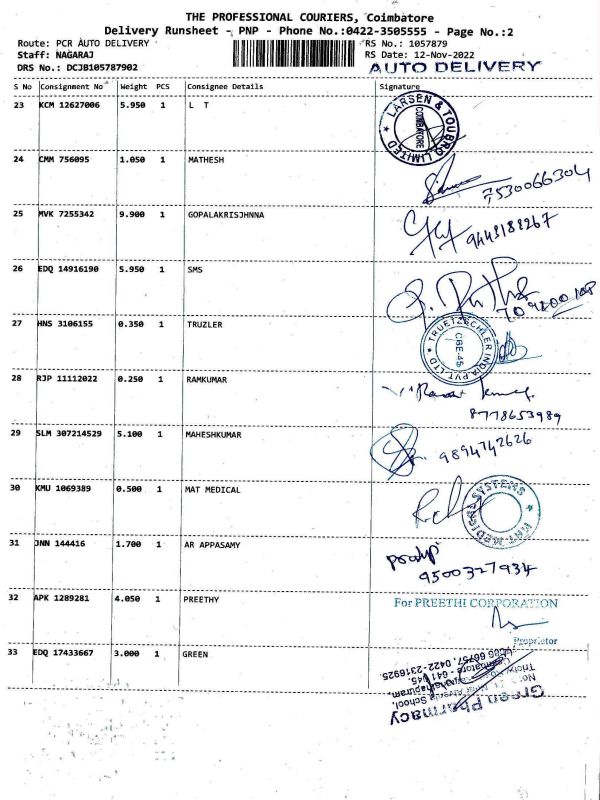 THE PROFESSIONAL COURIERS, Coimbatore
Delivery Runsheet - PNP - Phone No.:0422-3505555 - Page No.:2
Route: PCR AUTO DELIVERY RS No.: 1057879
Staff: NAGARAJ RS Date: 12-Nov-2022
DRS No.: DCJB105787902 AUTO DELIVERY
S No Consignment No Weight PCS Consignee Details Signature
23 KCM 12627006 5.950 1 L T
LARSEN & TOUBRO LIMITED
COIMBATORE
24 CMM 756095 1.050 1 MATHESH
7530066304
25 MVK 7255342 9.900 1 GOPALAKRISJHNNA
9443188267
26 EDQ 14916190 5.950 1 SMS
27 HNS 3106155 0.350 1 TRUZLER
TRUETZSCHLER INDIA PVT LTD
CBE-45
28 RJP 11112022 0.250 1 RAMKUMAR
8778653989
29 SLM 307214529 5.100 1 MAHESHKUMAR
9894742626
30 KMU 1069389 0.500 1 MAT MEDICAL
MAT MEDICAL SYSTEMS
31 JNN 144416 1.700 1 AR APPASAMY
9500327934
32 APK 1289281 4.050 1 PREETHY
For PREETHI CORPORATION
Proprietor
33 EDQ 17433667 3.000 1 GREEN
Green Pharmacy
School,
Coimbatore - 641 045.
66757, 0422-2316925.